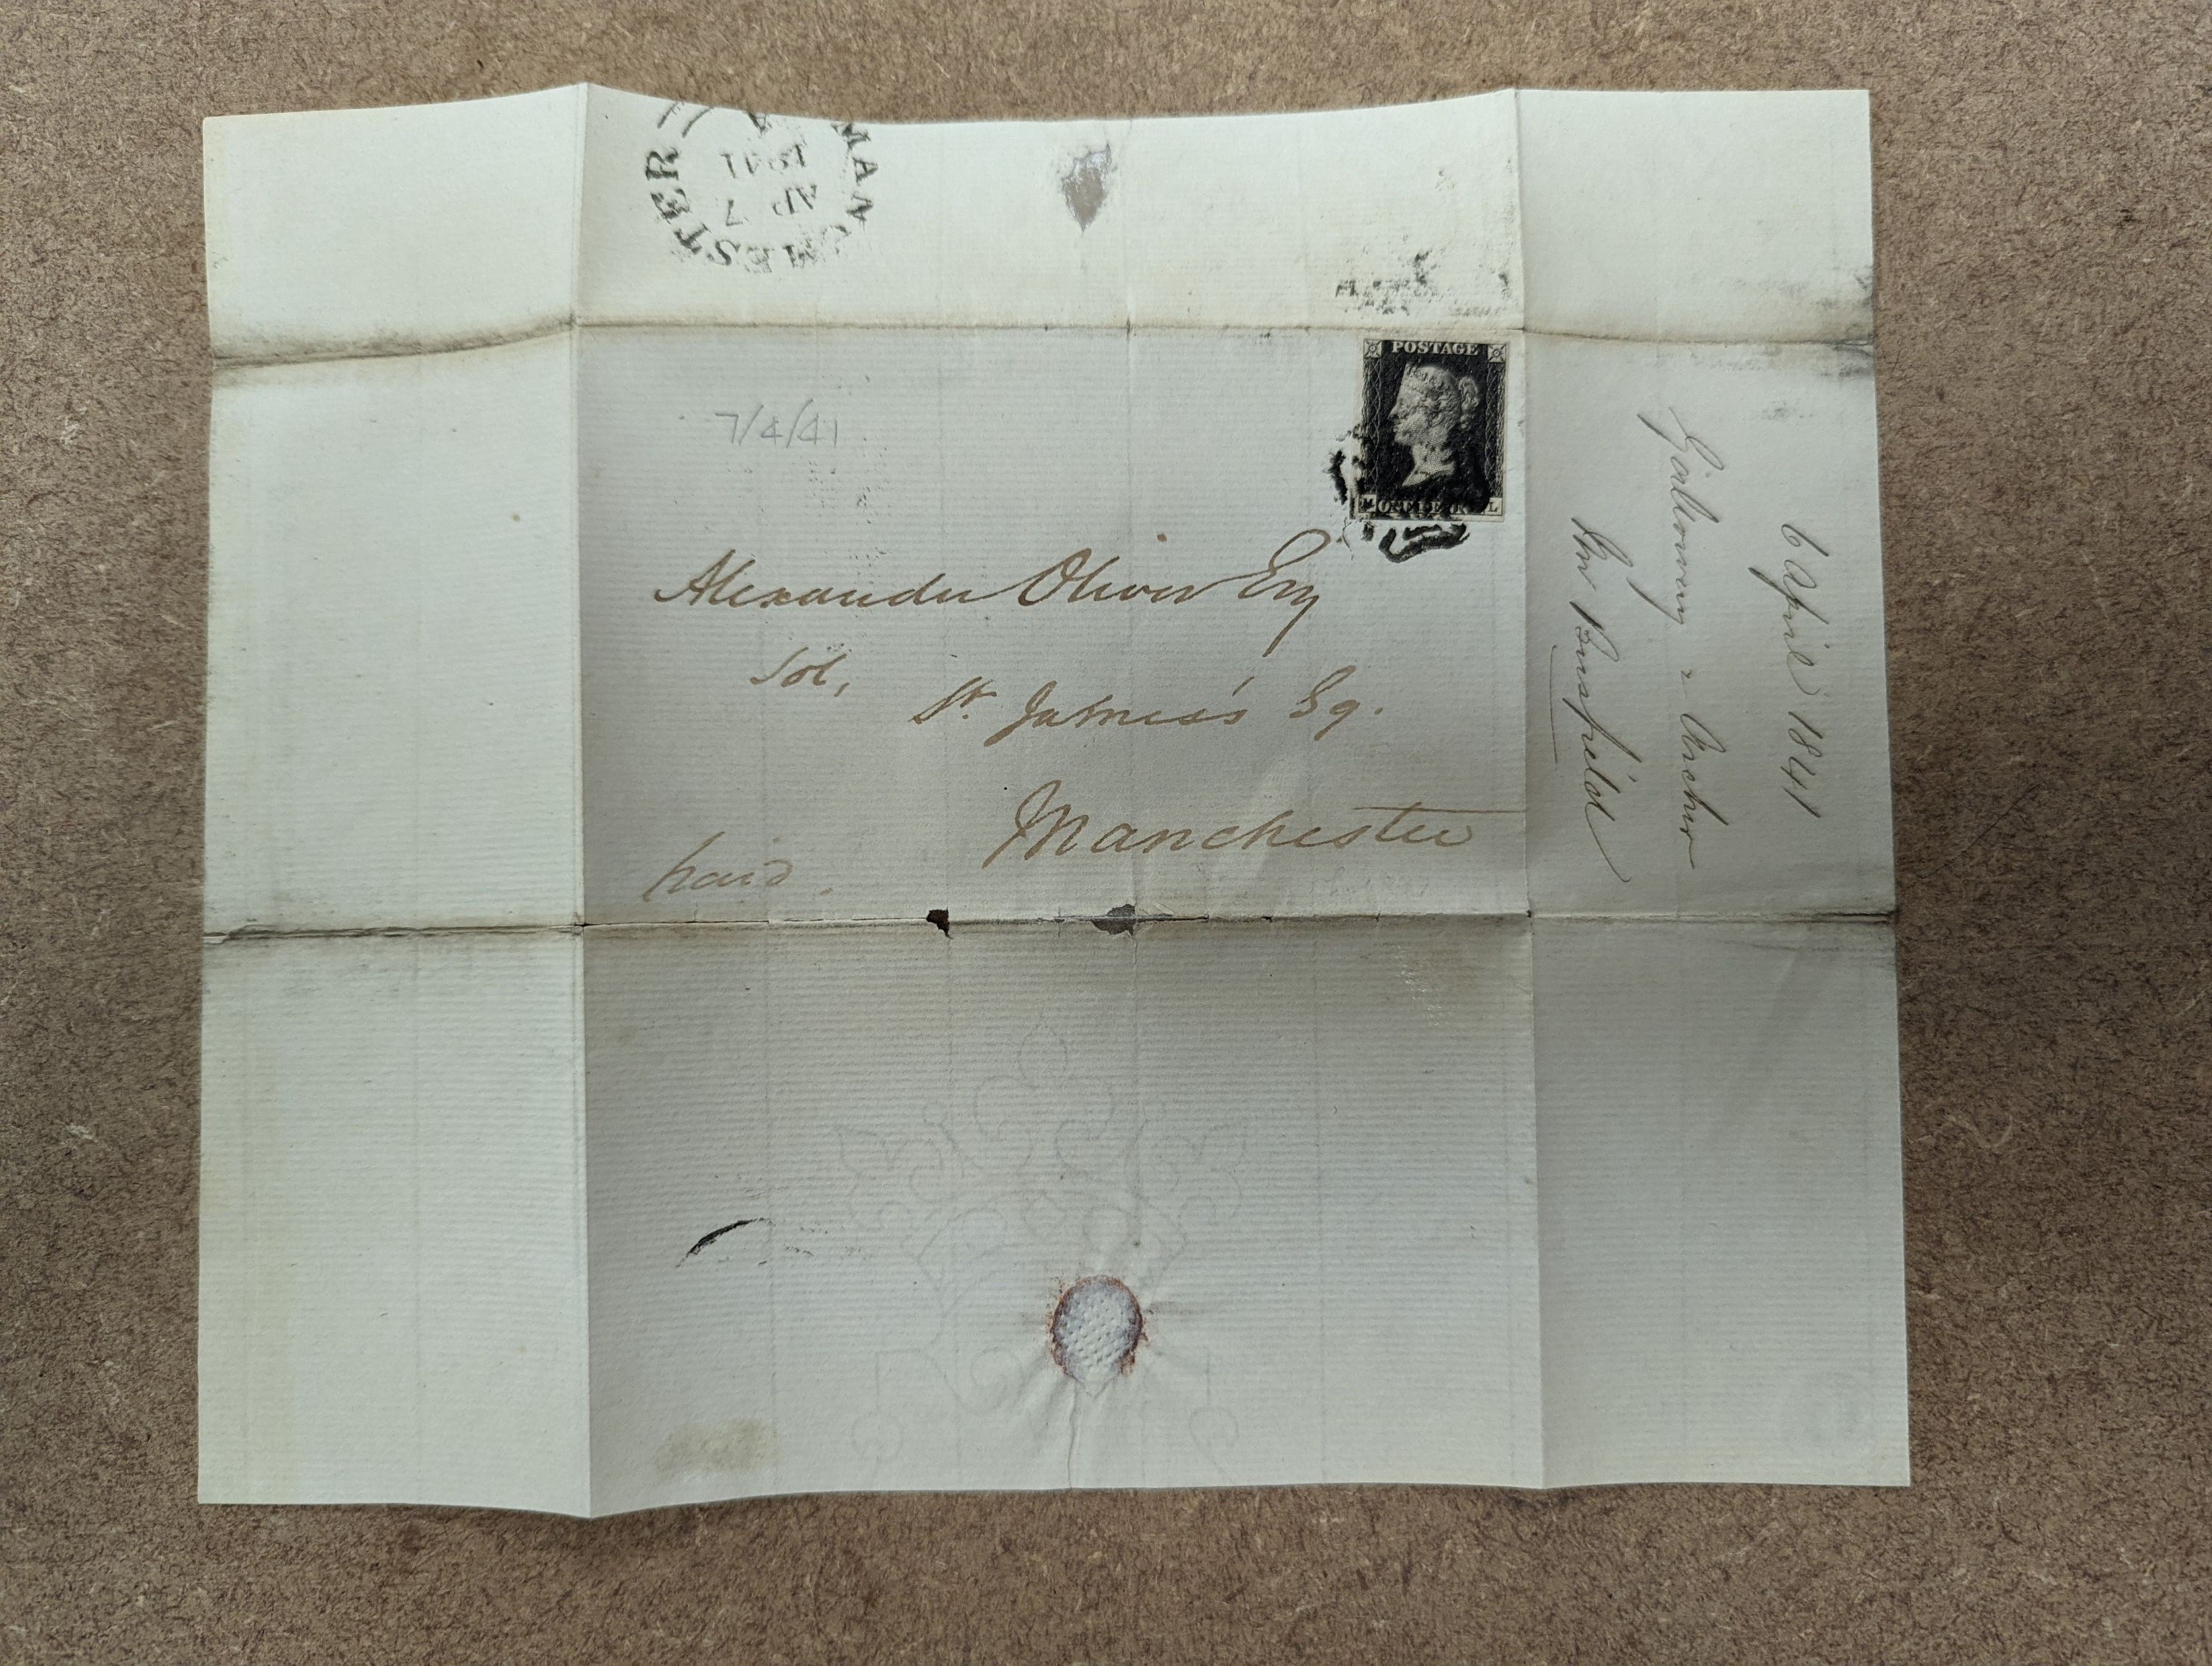 MANCHESTER
AP 7
1841
POSTAGE
7/4/41
M ONE PENNY L
Alexander Oliver Esq
Sol,
St. James's Sq.
Manchester
paid.
6 April 1841
Galloway & Archer
Mr Busfeild